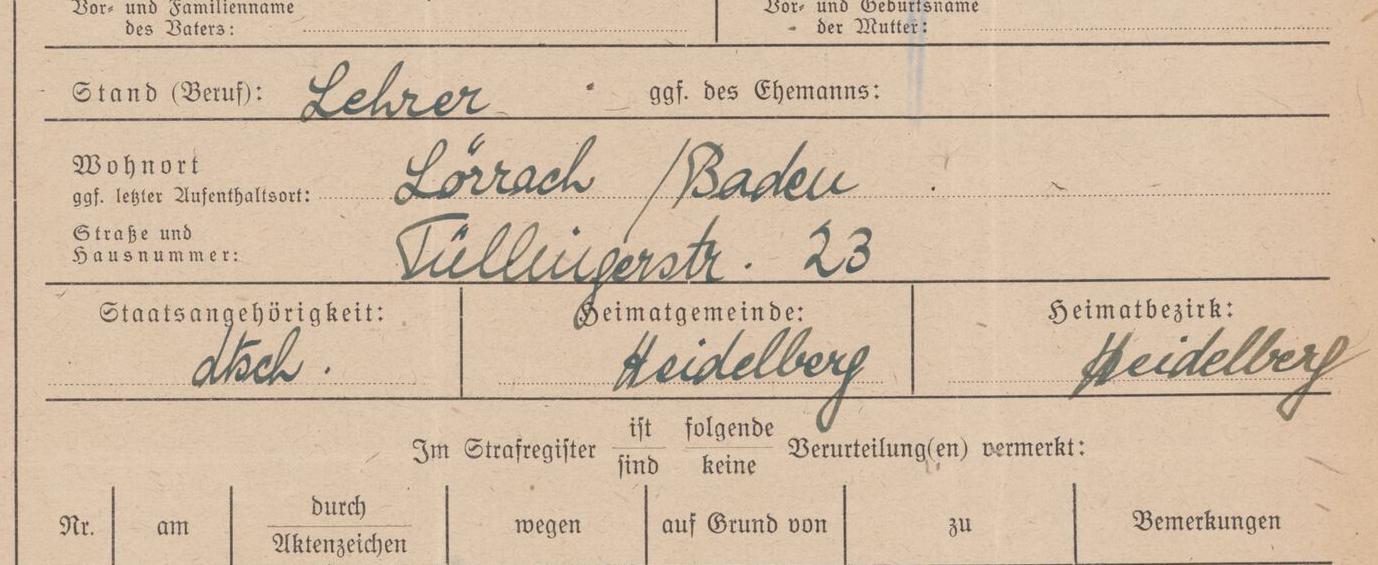 Vor- und Familienname
des Vaters:
Vor- und Geburtsname
der Mutter:
Stand (Beruf): Lehrer ggf. des Ehemanns:
Wohnort
ggf. letzter Aufenthaltsort: Lörrach / Baden
Straße und
Hausnummer: Tüllingerstr. 23
Staatsangehörigkeit: Heimatgemeinde: Heimatbezirk:
dtsch. Heidelberg Heidelberg
Im Strafregister ist folgende Verurteilung(en) vermerkt:
sind keine
Nr. am durch wegen auf Grund von zu Bemerkungen
Aktenzeichen